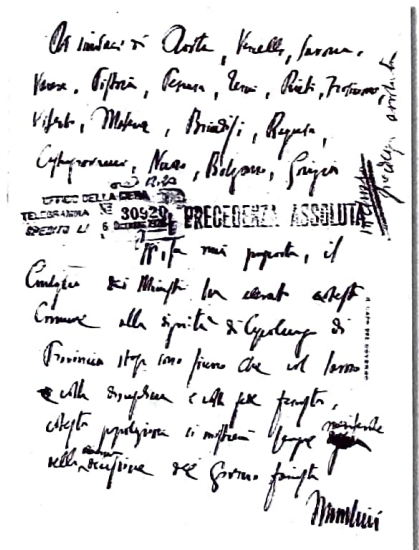 Ai sindaci di Aosta, Vercelli, Savona,
Varese, Pistoia, Pescara, Terni, Rieti, Frosinone
Viterbo, Matera, Brindisi, Ragusa,
Nuoro, Bolzano,
UFFICIO DELLA SERA
TELEGRAMMA Nº 30920
SPEDITO LI 6
PRECEDENZA ASSOLUTA
mia proposta, il
Consiglio dei Ministri ha elevato codesto
Comune alla dignità di Capoluogo di
Provincia stop sono sicuro che col lavoro
colla disciplina e colla fede fascista,
codesta popolazione si mostrerà sempre meritevole
della decisione del Governo fascista
Mussolini